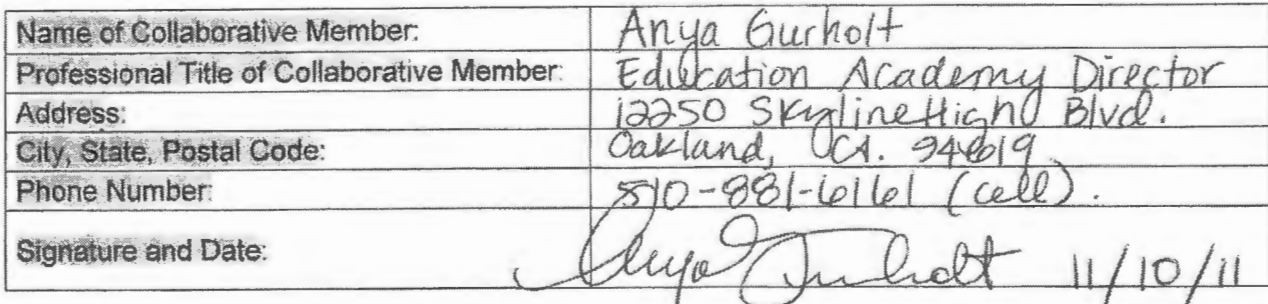 Name of Collaborative Member: Anya Gurholt
Professional Title of Collaborative Member: Education Academy Director
Address: 12250 Skyline High Blvd.
City, State, Postal Code: Oakland, CA. 94619
Phone Number: 510-881-6161 (cell).
Signature and Date: Anya Gurholt 11/10/11